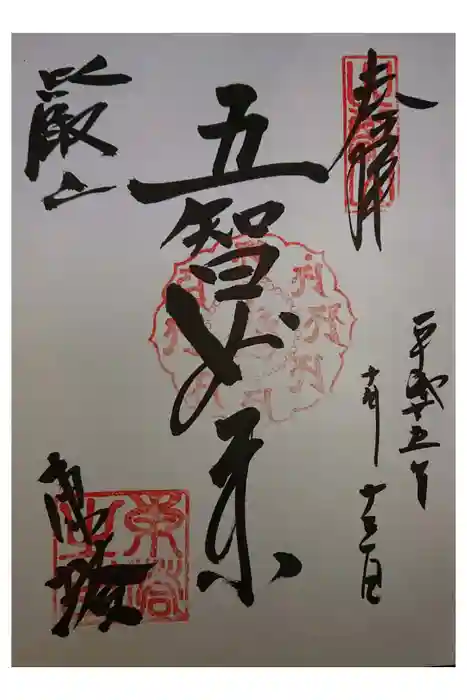 奉拝
平成十五年
十月十三日
五智如来
叡山
東塔